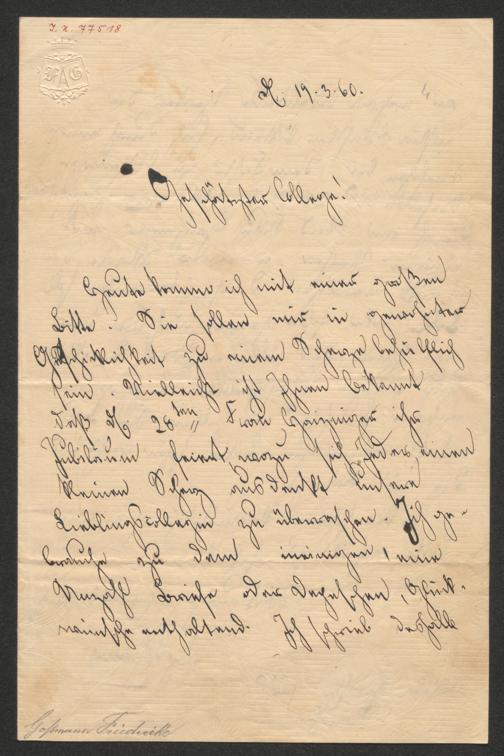 I. N. 77518
19.3.60.
Geschätzter College!
Heute komme ich mit einer großen
Bitte. Sie sollen mir in gewohnter
Geschicklichkeit zu einem Scherze behülflich
sein. Vielleicht ist Ihnen bekannt
daß 28ten Frau Haizinger ihr
Jubiläum feiert, wozu sich Jeder einen
kleinen Scherz ausdenkt unsere
Lieblingscollegin zu überraschen. Ich ge-
brauche zu dem meinigen, eine
Unzahl Briefe oder Depeschen, Glück-
wünsche enthaltend. Ich schrieb deßhalb
Goßmann Friederike